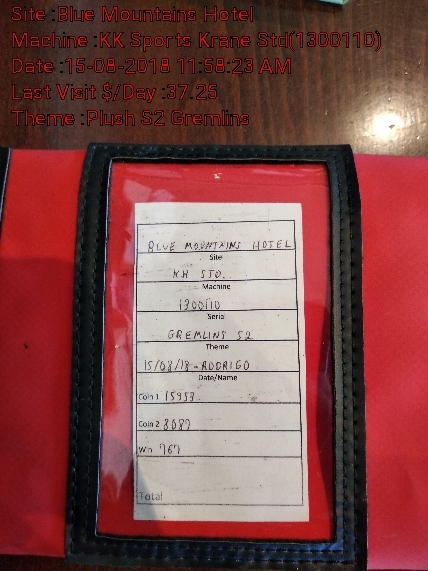 Site :Blue Mountains Hotel
Machine :KK Sports Krane Std(1300110)
Date :15-08-2018 11:58:23 AM
Last Visit $/Day :37.25
Theme :Plush S2 Gremlins
BLUE MOUNTAINS HOTEL
Site
KK STD.
Machine
1300110
Serial
GREMLINS S2
Theme
15/08/18-RODRIGO
Date/Name
Coin 1 15953
Coin 2 3087
Win 767
Total